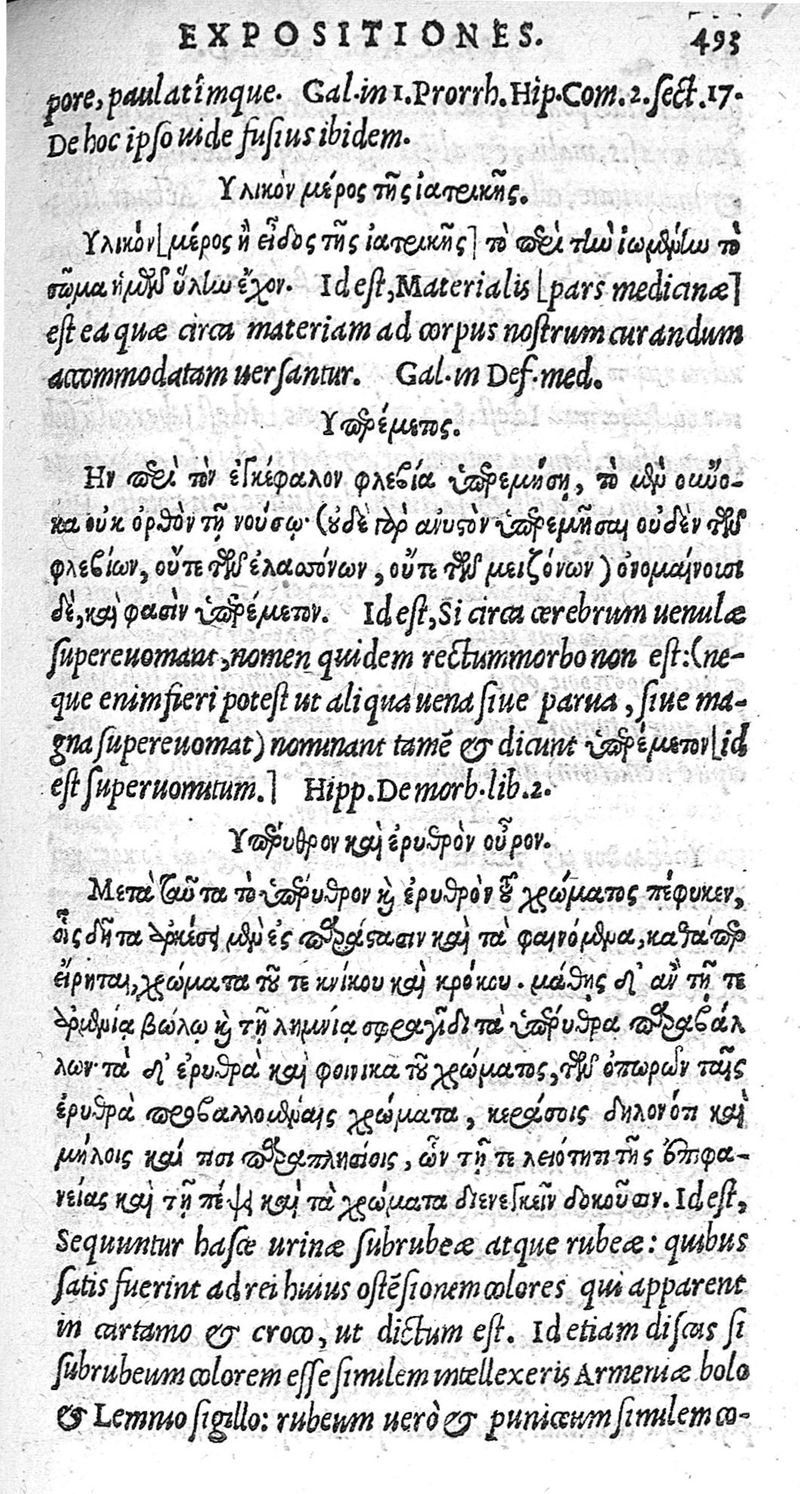 EXPOSITIONES. 495
pore, paulatîmque. Gal.in 1.Prorrh.Hip.Com.2.sect.17.
De hoc ipso uide fusius ibidem.
Υλικὸν μέρος τῆς ἰατρικῆς.
Υλικὸν[μέρος ἢ εἶδος τῆς ἰατρικῆς] τὸ περὶ τὴν ἰωμένην τὸ
σῶμα ἡμῶν ὕλην ἔχον. Id est, Materialis [pars medicinæ]
est ea quæ circa materiam ad corpus nostrum curandum
accommodatam uersantur. Gal.in Def.med.
Υπερέμετος.
Ην περὶ τὸν ἐγκέφαλον φλεβία ὑπερεμήσῃ, τὸ μὲν οὔνο-
μα οὐκ ὀρθὸν τῇ νούσῳ· (οὐδὲ γὰρ ἀνυστὸν ὑπερεμῆσαι οὐδὲν τῶν
φλεβίων, οὔτε τῶν ἐλασσόνων, οὔτε τῶν μειζόνων) ὀνομαίνουσι
δὲ, καὶ φασὶν ὑπερέμετον. Id est, Si circa cerebrum uenulæ
supereuomant, nomen quidem rectum morbo non est:(ne-
que enim fieri potest ut aliqua uena siue parua, siue ma-
gna supereuomat) nominant tamē & dicunt ὑπερέμετον[id
est superuomitum.] Hipp.De morb.lib.2.
Υπέρυθρον καὶ ἐρυθρὸν οὖρον.
Μετὰ ταῦτα τὸ ὑπέρυθρον κὶ ἐρυθρὸν τοῦ χρώματος πέφυκεν,
οἷς δῆτα ἀρκέσει μὲν ἐς παράστασιν καὶ τὰ φαινόμενα, καθάπερ
εἴρηται, χρώματα τοῦ τε κνίκου καὶ κρόκου. μάθῃς δ' ἂν τῇ τε
ἀρμενίᾳ βώλῳ κὶ τῇ λημνίᾳ σφραγῖδι τὰ ὑπέρυθρα παραβάλ
λων· τὰ δ' ἐρυθρὰ καὶ φοινικᾶ τοῦ χρώματος, τῶν ὀπωρῶν ταῖς
ἐρυθρὰ προβαλλομέναις χρώματα, κεράσοις δηλονότι καὶ
μήλοις καί τισι παραπλησίοις, ὧν τῇ τε λειότητι τῆς ἐπιφα-
νείας καὶ τῇ πέψει καὶ τὰ χρώματα διενεγκεῖν δοκοῦσιν. Id est,
Sequuntur hasce urinæ subrubeæ atque rubeæ: quibus
satis fuerint ad rei huius ostēsionem colores qui apparent
in cartamo & croco, ut dictum est. Id etiam discas si
subrubeum colorem esse similem intellexeris Armeniæ bolo
& Lemnio sigillo: rubeum uerò & puniceum similem co-